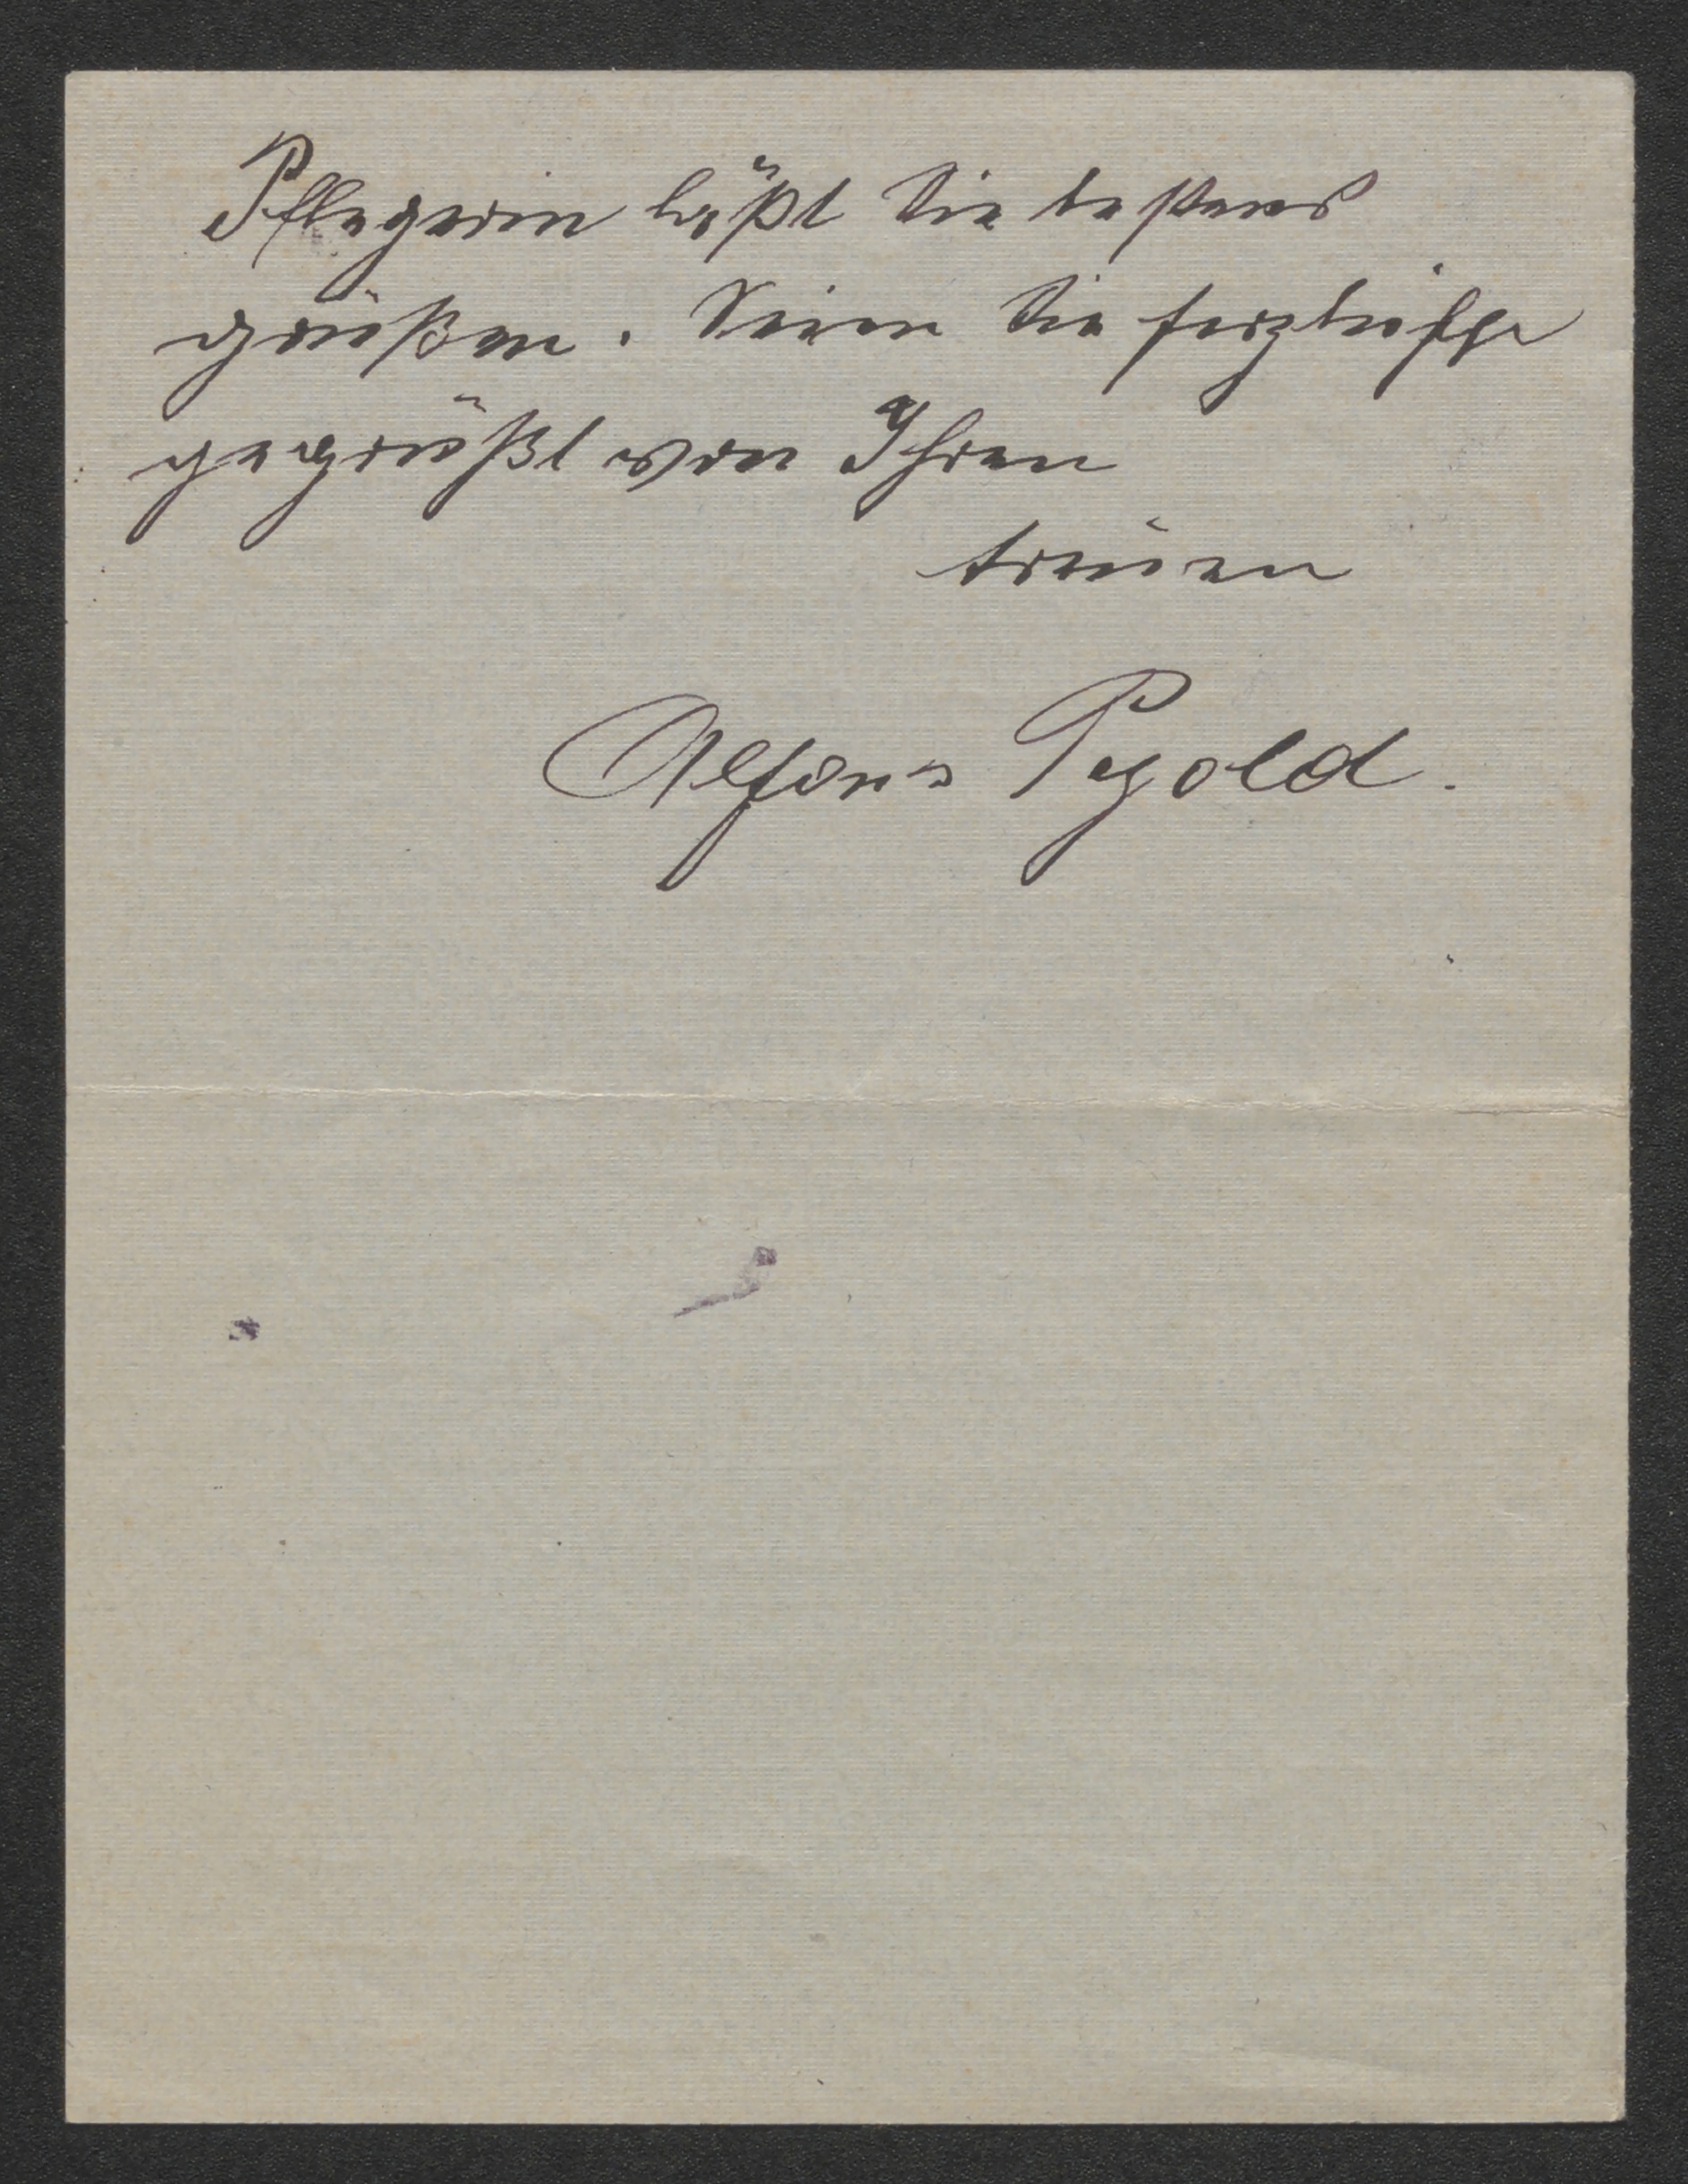 Pflegerin läßt Sie bestens
grüßen. Seien Sie herzlichst
gegrüßt von Ihren
treuen
Alfons Petzold.